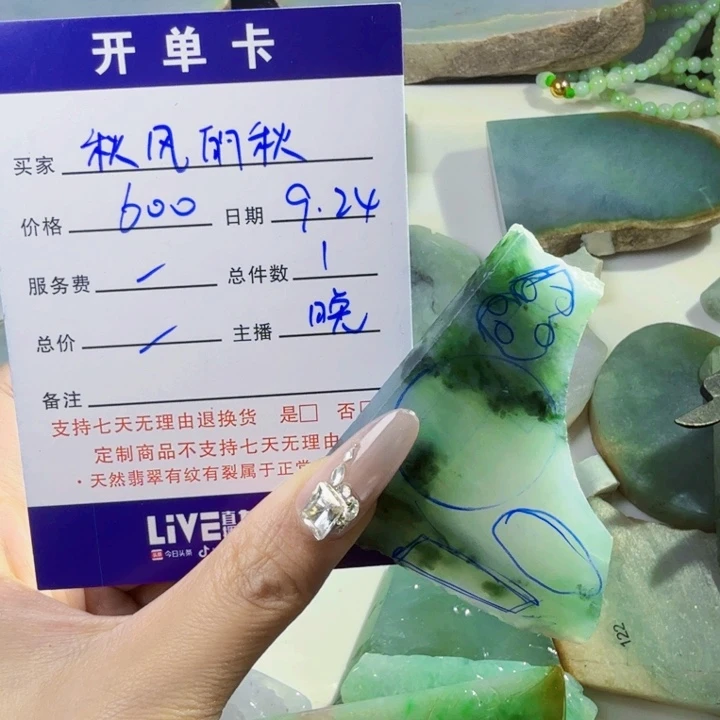 开单卡
买家 秋风的秋
价格 600 日期 9.24
服务费 / 总件数 1
总价 / 主播 晚
备注
支持七天无理由退换货 是□ 否
定制商品不支持七天无理由
·天然翡翠有纹有裂属于正常
LiVE直播
今日头条
122